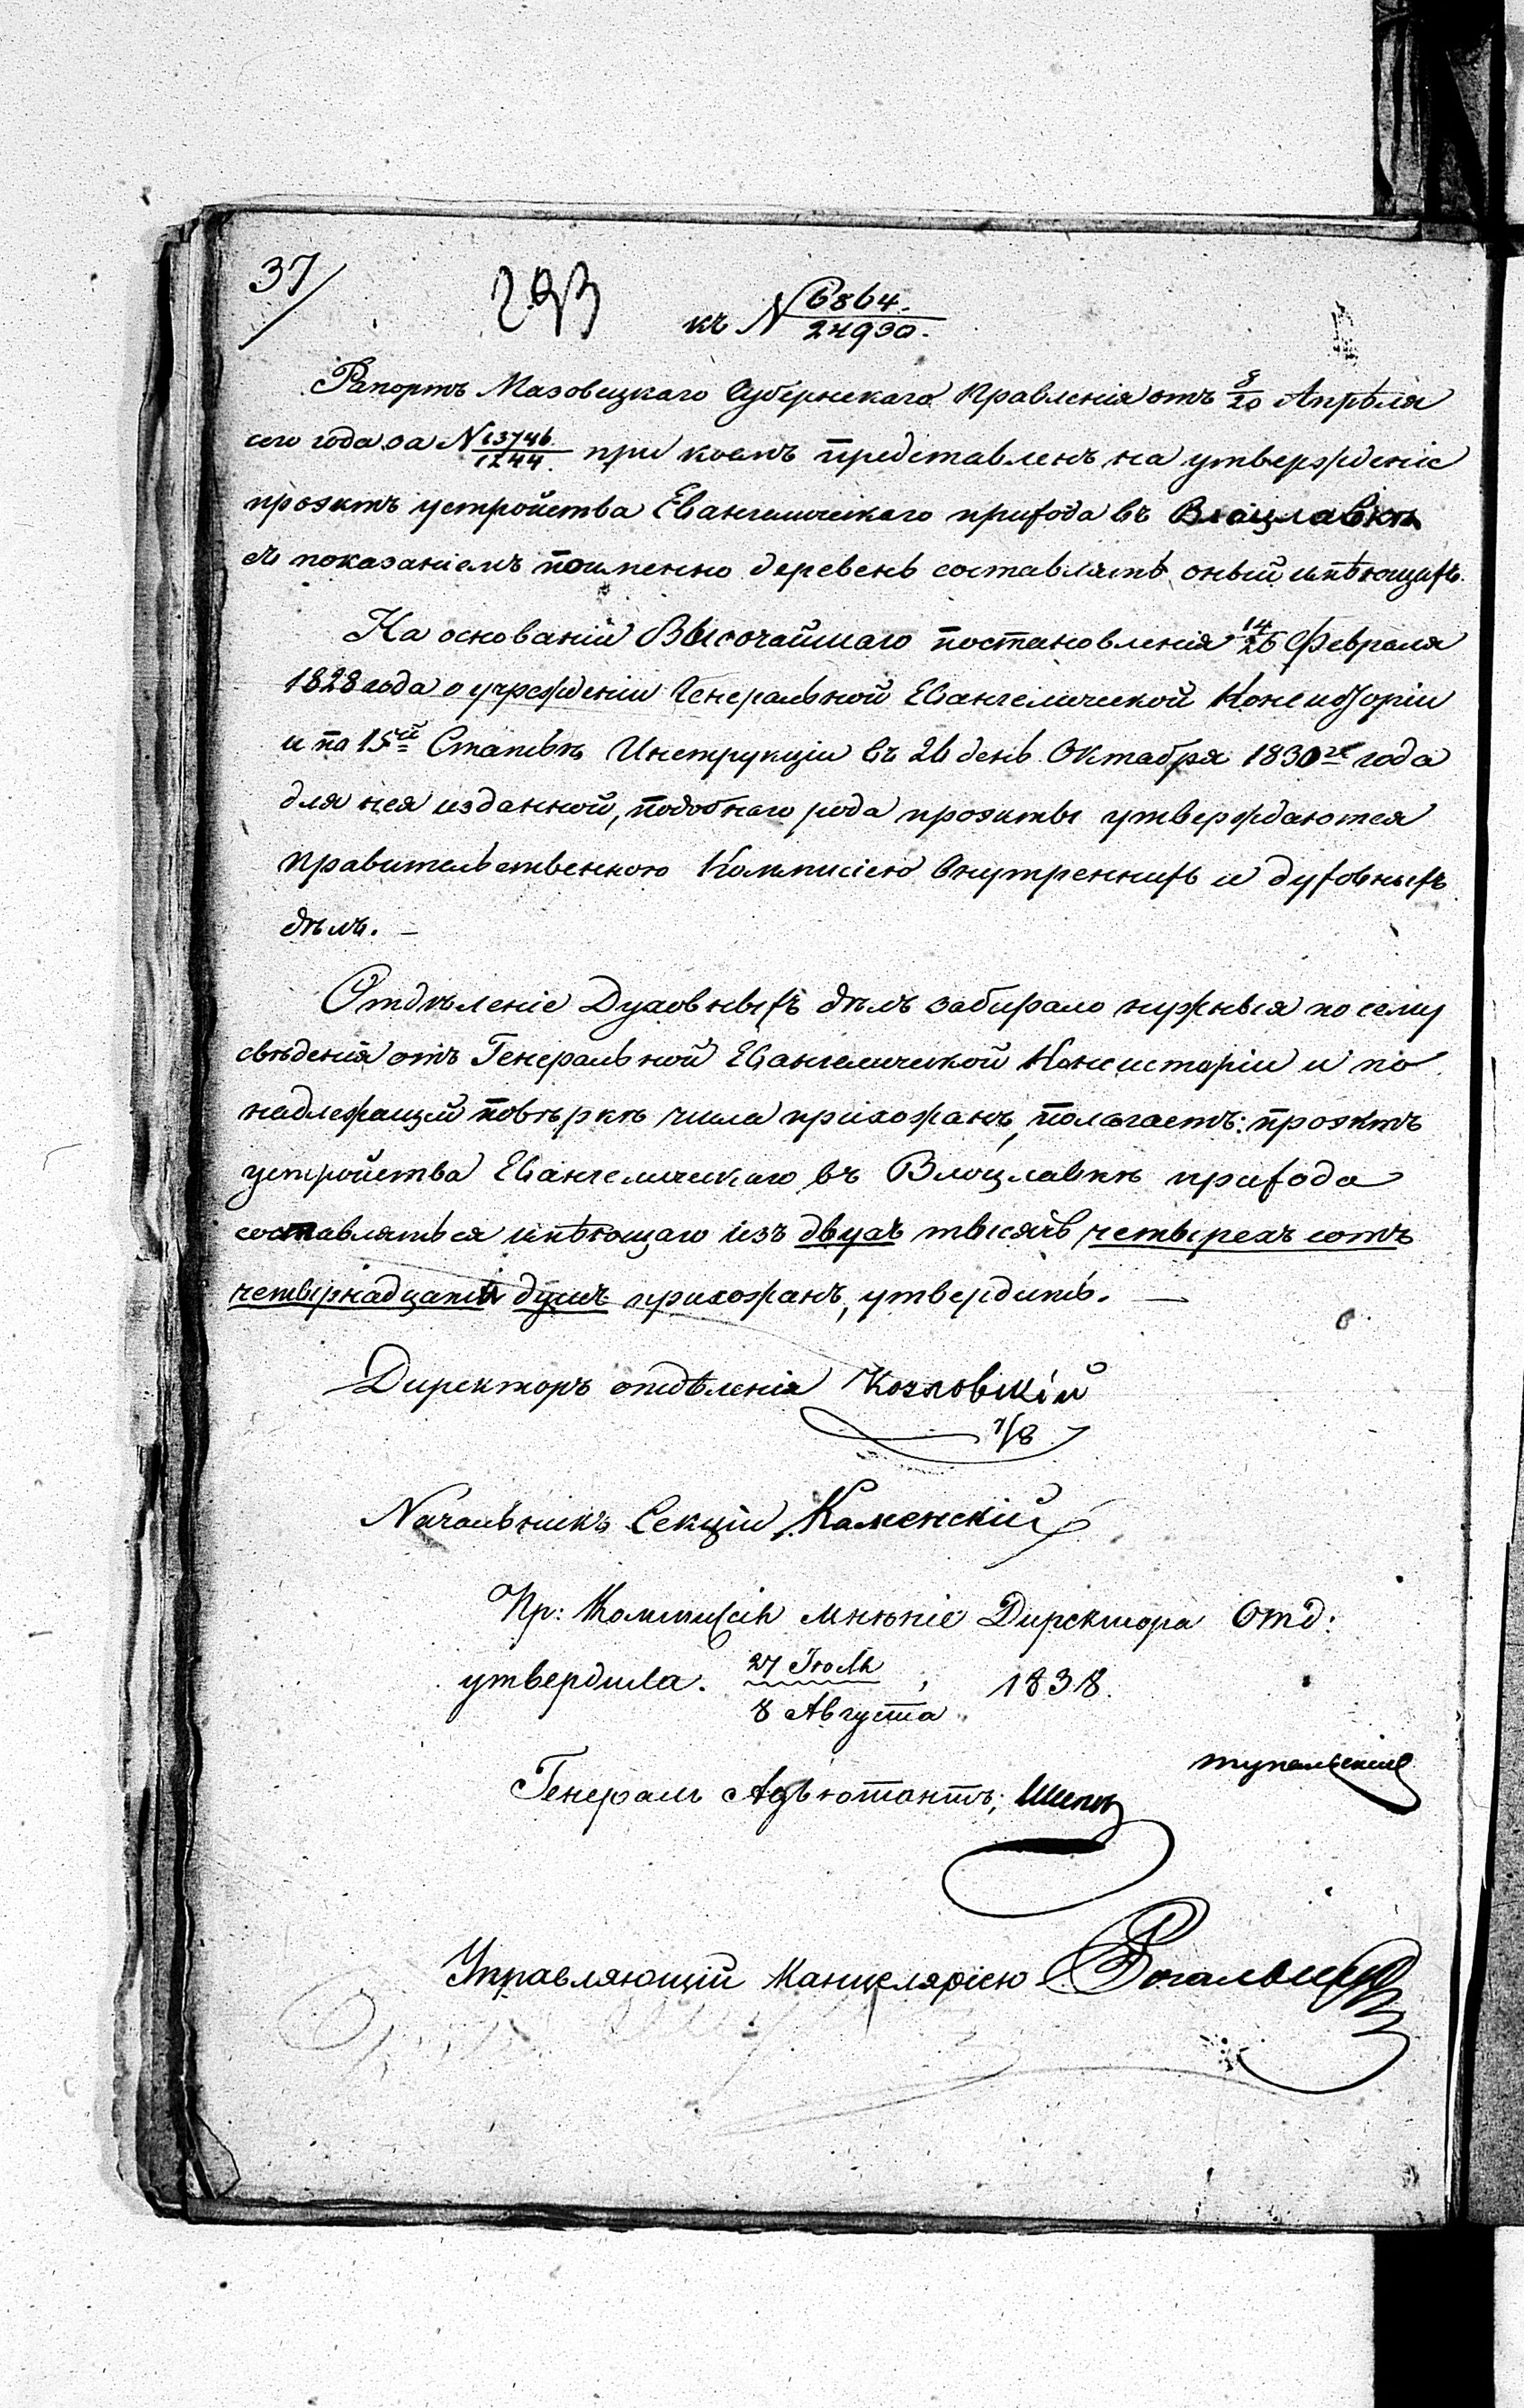 37/
293
къ N 6864./24930.
Рапортъ Мазовецкаго Губернскаго Правленія отъ 8/20 Апрѣля
сего года за N 13746./1244. при коемъ представленъ на утвержденіе
проэктъ устройства Евангелическаго прихода въ Влоцлавкѣ
съ показаніемъ поименно деревень составлять оный имѣющихъ.
На основаніи Высочайшаго постановленія 14/26 Февраля
1828 года о учрежденіи Генеральной Евангелической Консисторіи
и по 15ой Статьѣ Инструкціи въ 26 день Октября 1830го года
для нея изданной, подобнаго рода проэкты утверждаются
Правительственною Коммисіею Внутреннихъ и духовныхъ
дѣлъ. —
Отдѣленіе Духовныхъ дѣлъ забирало нужныя по сему
свѣденія отъ Генеральной Евангелической Консисторіи и по
надлежащей повѣркѣ числа прихожанъ, полагаетъ: проэктъ
устройства Евангелическаго въ Влоцлавкѣ прихода
составляться имѣющаго изъ двухъ тысячь четырехъ сотъ
четырнадцати душъ прихожанъ, утвердить. —
Директоръ отдѣленія Козловскій
7/8
Начальникъ Секціи Каменскій
Пр: Коммисія мнѣніе Директора Отд:
утвердила. 27 Іюля/8 Августа 1838.
Генералъ Адъютантъ; Шиповъ
Управляющій Канцеляріею